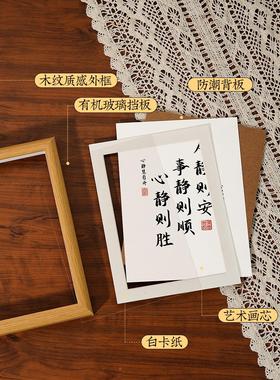 木纹质感外框
防潮背板
有机玻璃挡板
人静则安
事静则顺
心静则胜
艺术画芯
白卡纸